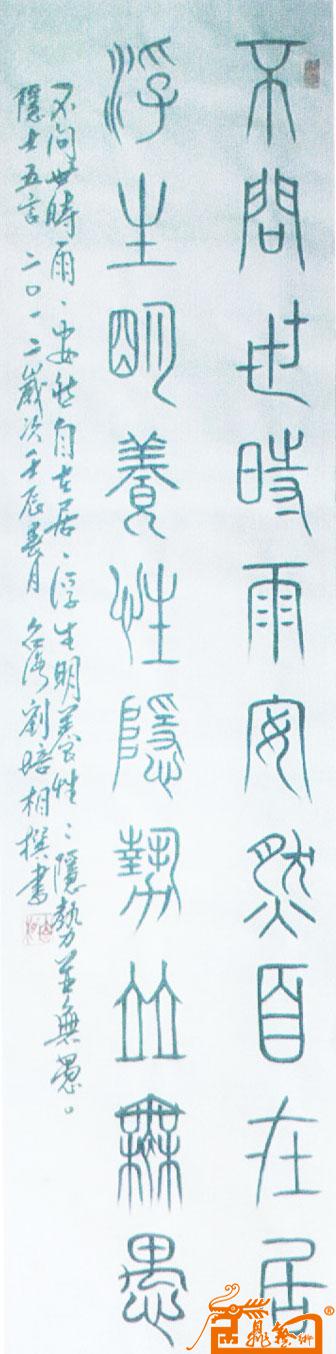 不問世時雨安然自在居
浮生明養性隱勢並無愚
不问世時雨、安然自在居、浮生明養性、隱勢並無愚。
隱士五言 二〇一二歲次壬辰月 台湾劉相撰書
鼎藝術